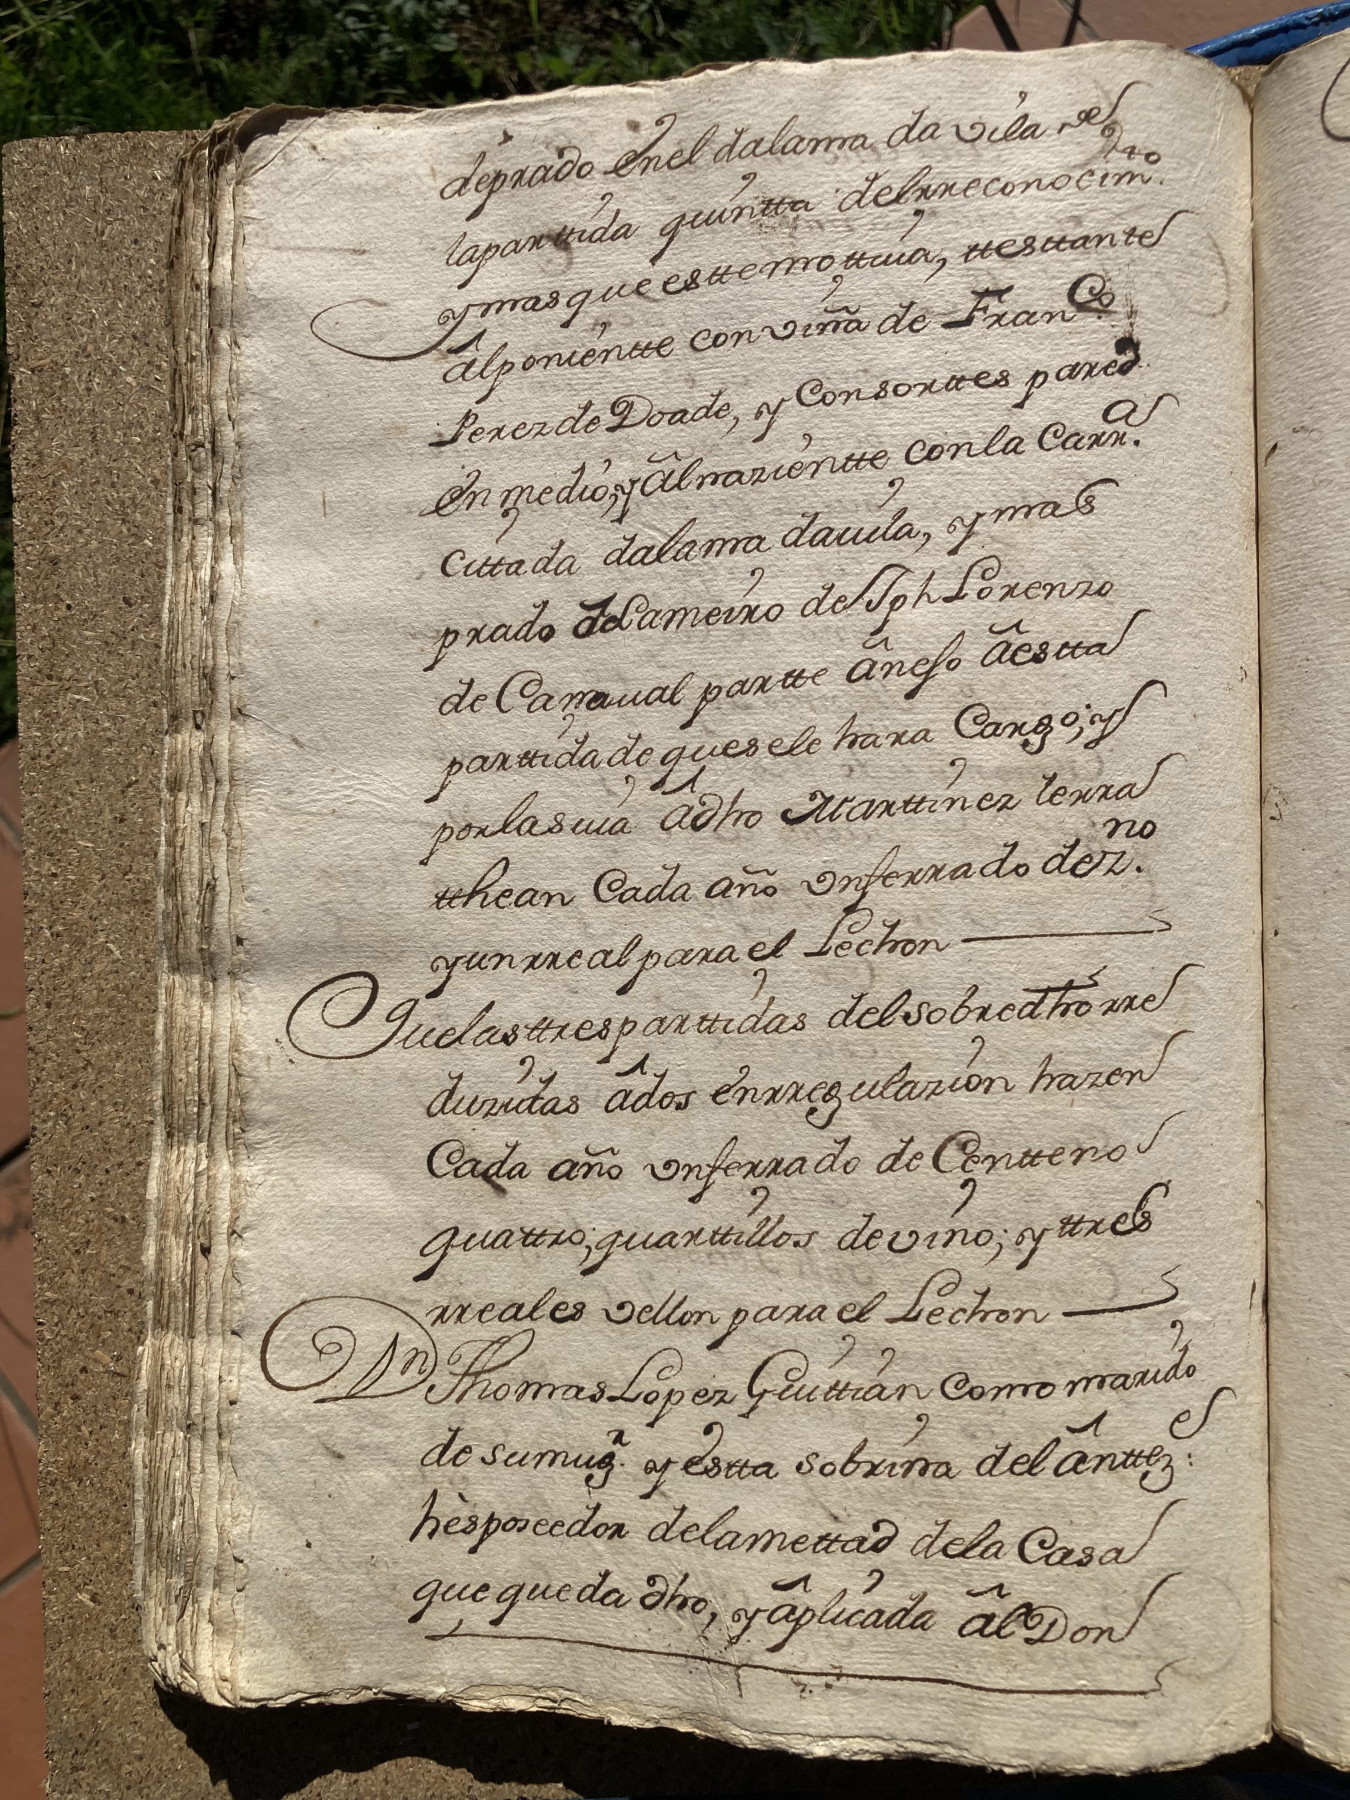 deprado énel dalama da vila de
laparttida quintta delrreconocim.to
y mas que esttemo ttiuia, ttesttante
âlponientte con viña de Fran.co
Perez de Doade, y Consorttes pared
én medio; y âl nazientte con la Carr.a
Cittada dalama dauila, y mas
prado de Lameiro de Jph Lorenzo
de Carnaual partte ânejo âestta
parttida de que se le hara Cargo; y
por la suia âdho Marttinez lerra
tthean Cada año vn ferrado dez.no
y un rreal para el Lechon
Que las ttres parttidas del sobredho rre
duzidas âdos énrregulazion hazen
Cada año vn ferrado de Centteno
quattro, quarttillos de vino; y ttres
rreales vellon para el Lechon
Dn Thomas Lopez Guittian como marido
de sumug.r y éstta sobrina del ânttez.e
hès poseedor dela mettad dela Casa
que queda dho, y âplicada âl Don